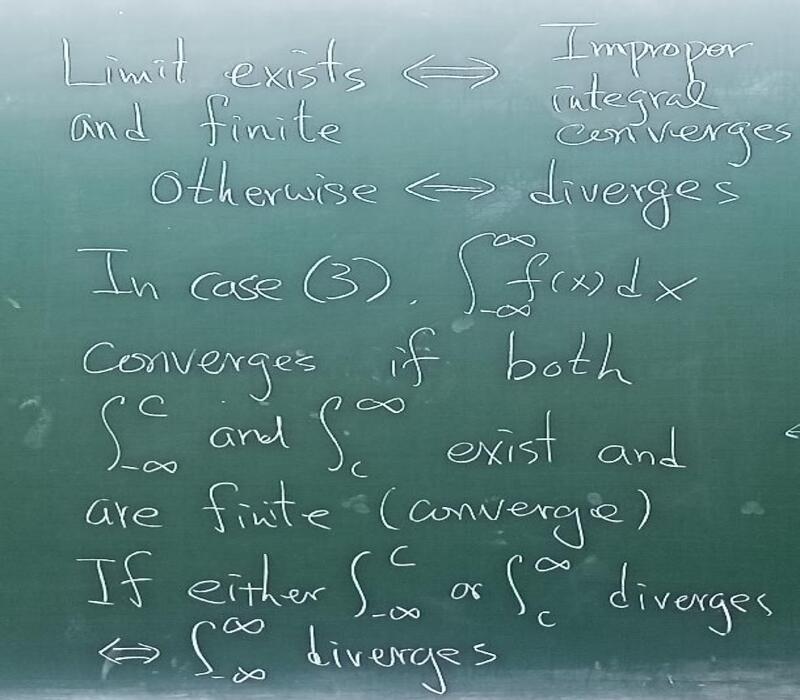 Limit exists ⟺ Impropor
and finite integral
converges
Otherwise ⟺ diverges
In case (3). ∫_{-∞}^{∞} f(x) dx
converges if both
∫_{-∞}^{c} and ∫_{c}^{∞} exist and
are finite (converge)
If either ∫_{-∞}^{c} or ∫_{c}^{∞} diverges
⟺ ∫_{-∞}^{∞} diverges